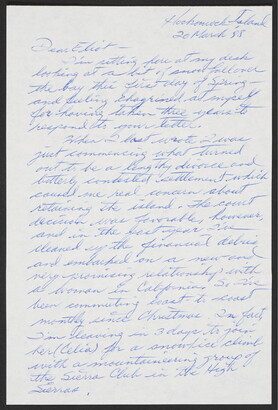 Hockomock Island
20 March 88
Dear Eliot —
I'm sitting here at my desk
looking at a bit of snow fall over
the bay this first day of Spring —
and feeling chagrined at myself
for having taken three years to
respond to your letter.
When I last wrote I was
just commencing what turned
out to be a lengthy divorce and
bitterly contested settlement which
caused me real concern about
retaining the island. The court
decision was favorable, however,
and in the past year I've
cleaned up the financial debris
and embarked on a new and
very promising relationship with
a woman in California. So I've
been commuting coast to coast
monthly since Christmas. In fact,
I'm leaving in 3 days to join
her (Celia) for a snow/ice climb
with a mountaineering group of
the Sierra Club in the High
Sierras.